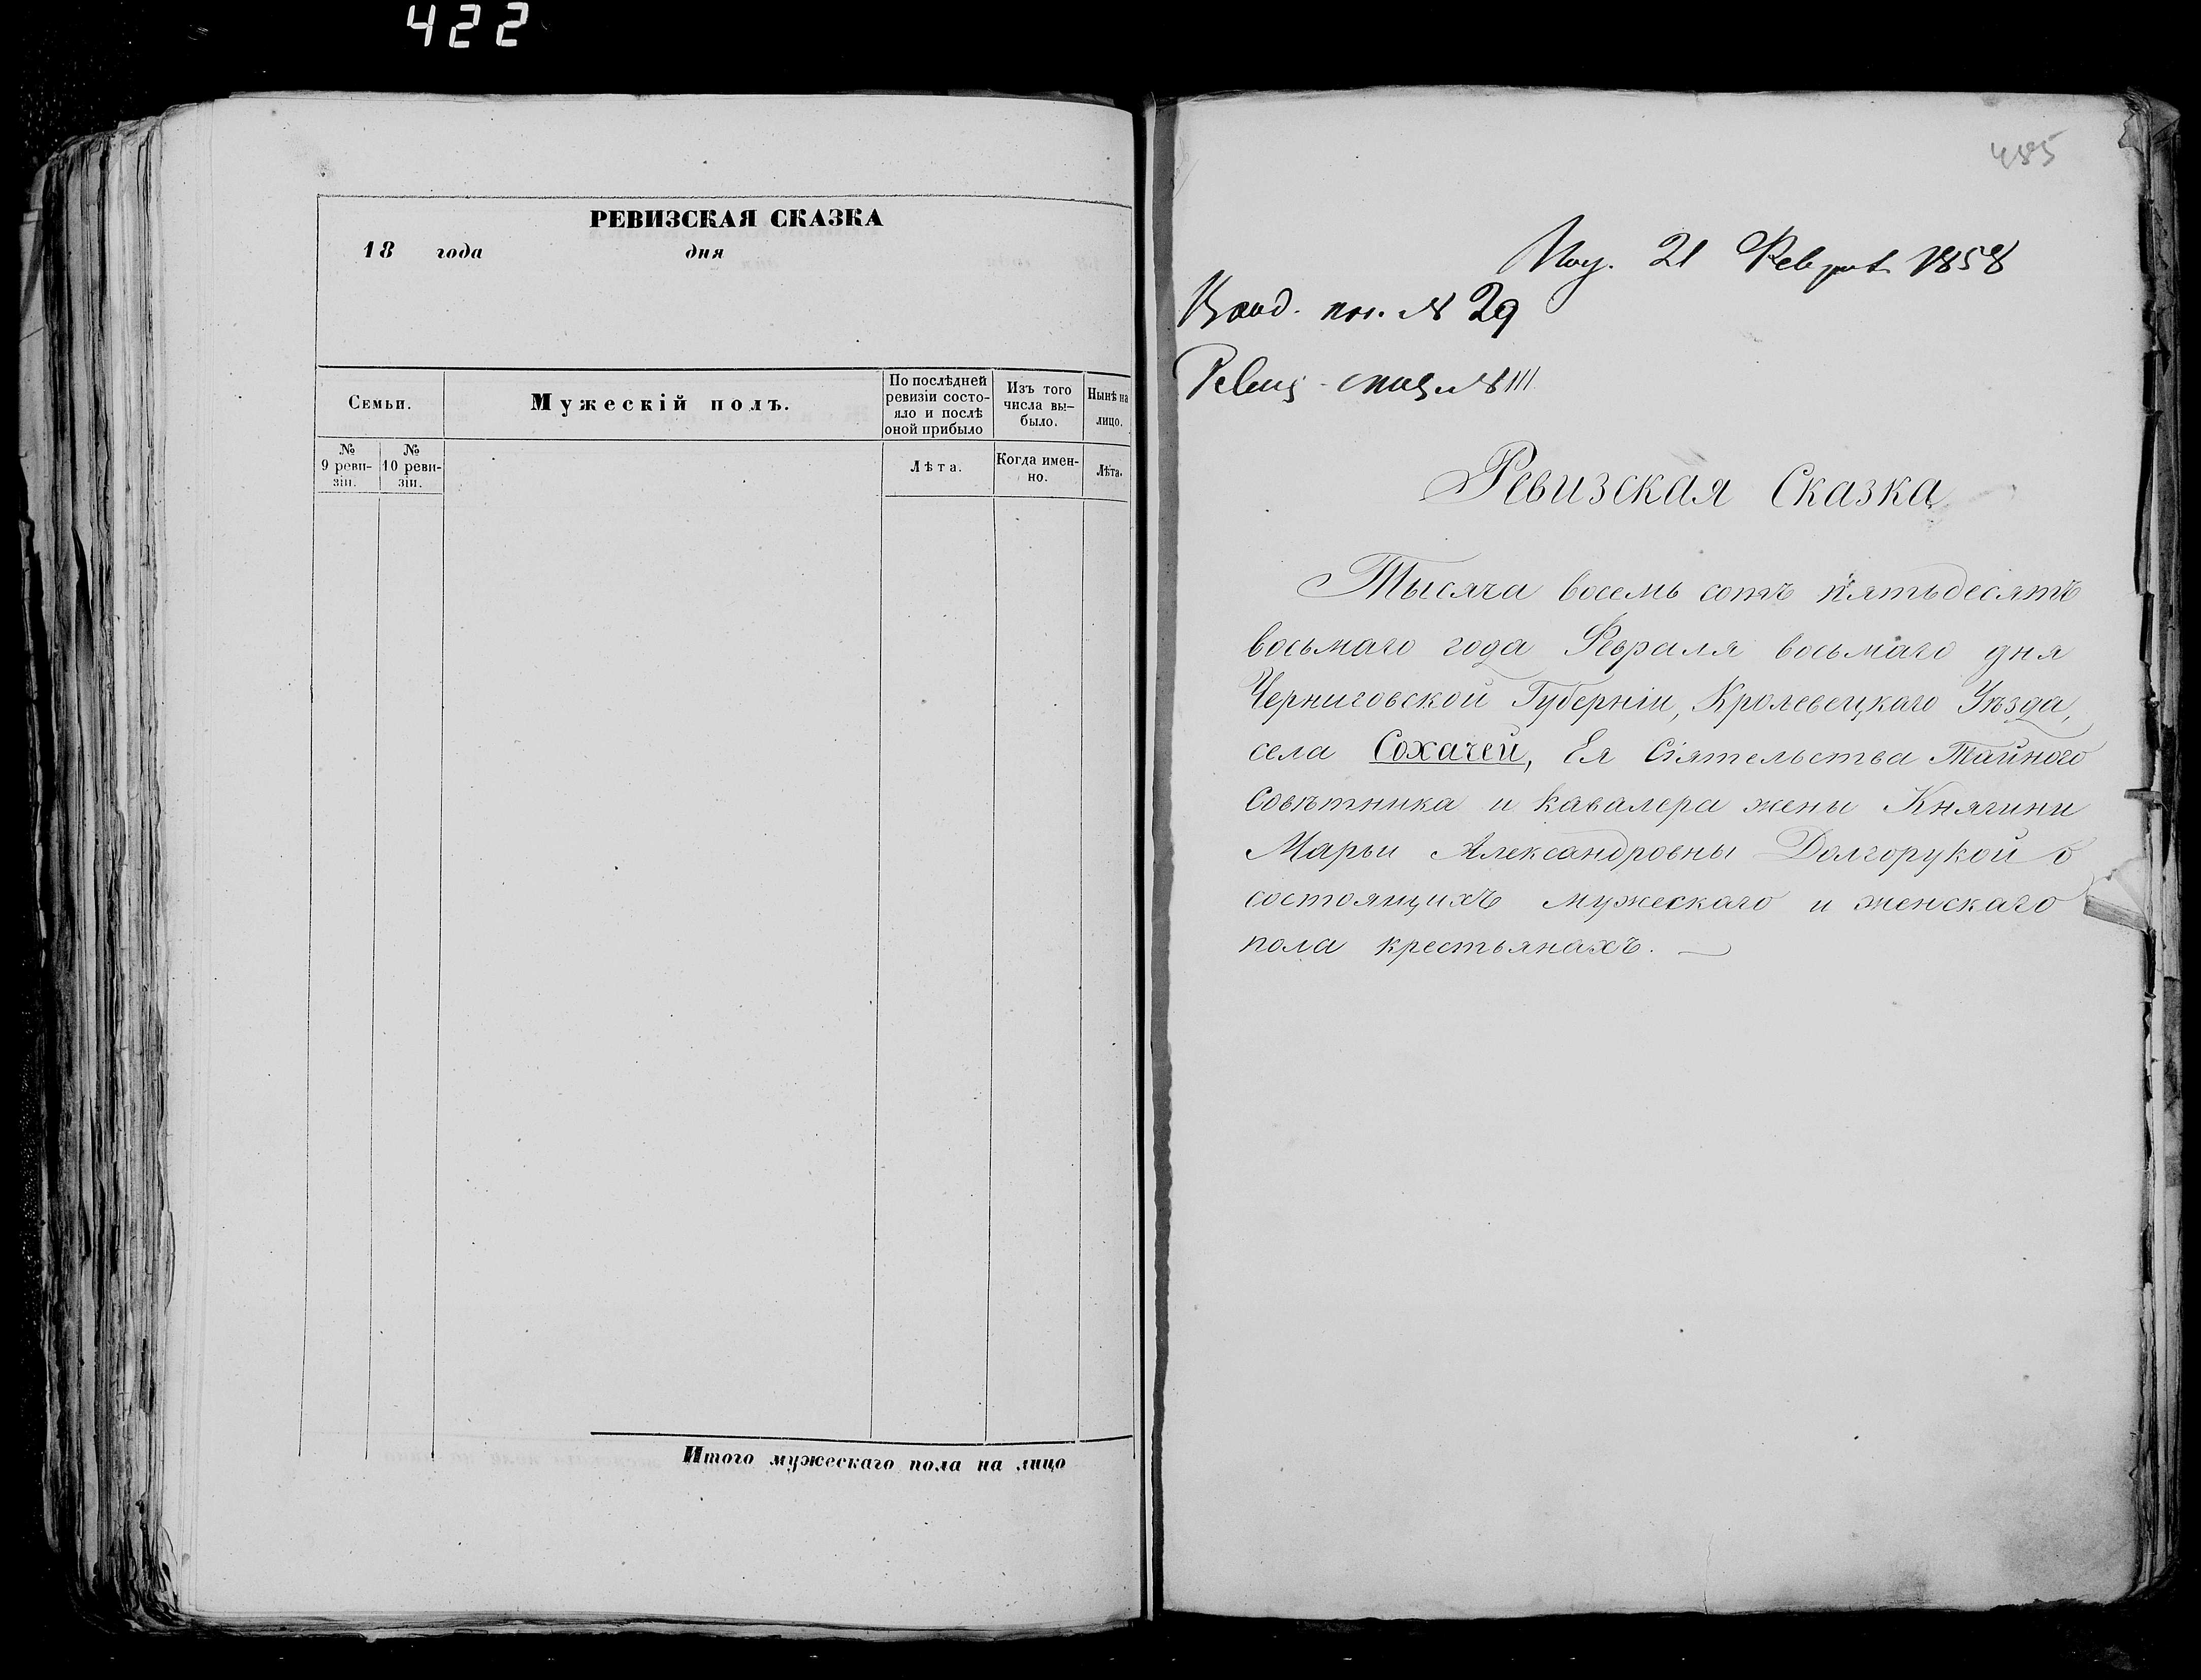 422
РЕВИЗСКАЯ СКАЗКА
18 года дня
Семьи.
Мужескій полъ.
По послѣдней
ревизіи состо-
яло и послѣ
оной прибыло
Изъ того
числа вы-
было.
Нынѣ на
лицо.
№
9 реви-
зіи.
№
10 реви-
зіи.
Лѣта.
Когда имен-
но.
Лѣта.
Итого мужескаго пола на лицо
485
Пол. 21 Феврал 1858
№ 29
Ревиз. сказ. № 111
Ревизская Сказка
Тысяча восемь сотъ пятьдесятъ
восьмаго года Февраля восьмаго дня
Черниговской Губерніи, Кролевецкаго Уѣзда,
села Сохачей, Ея Сіятельства Тайного
Совѣтника и Кавалера жены Княгини
Марьи Александровны Долгорукой о
состоящихъ мужескаго и женскаго
пола крестьянахъ. —